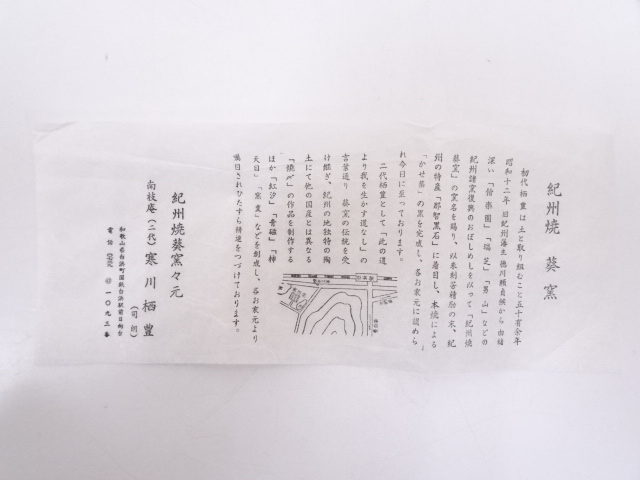 紀州焼 葵窯
初代栖豊は土と取り組むこと五十有余年
昭和十二年 旧紀州藩主徳川頼貞候から由緒
深い「偕楽園」「瑞芝」「男山」などの
紀州諸窯復興のおぼしめしを以って「紀州焼
葵窯」の窯名を賜り、以来刻苦精励の末、紀
州の特産「那智黒石」に着目し、本焼による
「かせ黒」の黒を完成し、各お家元に認めら
れ今日に至っております。
二代栖豊として「此の道
より我を生かす道なし」の
言葉通り 葵窯の伝統を受
け継ぎ、紀州の地独特の陶
土にて他の国産とは異なる
の作品を制作する
ほか「紅汐」「青磁」「梓
天目」「窯変」などを創成し、各お家元より
嘱目されひたすら精進をつづけております。
紀州焼葵窯々元
南枝庵(二代) 寒川栖豊
(司朗)
和歌山県白浜町国鉄白浜駅前日向台
電話